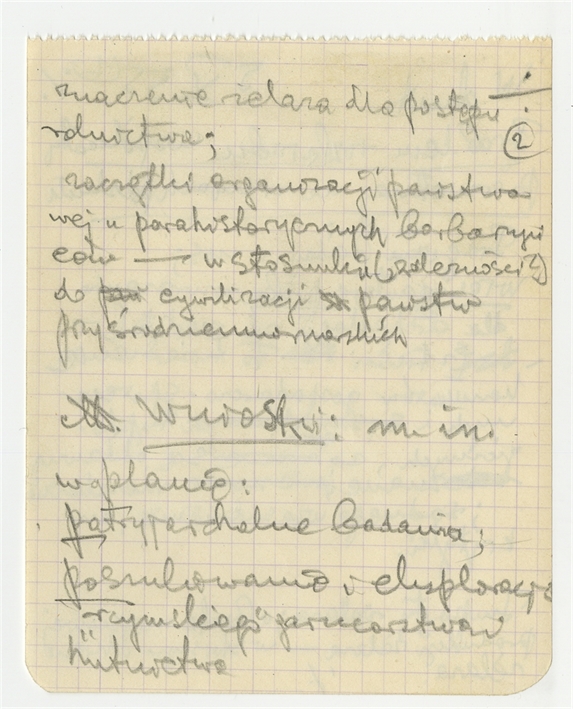 znaczenie żelaza dla postępu
2
rolnictwa;
zaczątki organizacji państwo
wej u parahistorycznych barbarzyń
ców — w stosunku (zależności?)
do cywilizacji państw
przyśródziemnomorskich
Wnioski: m in.
w planie:
badania;
poszukiwanie i eksploracja
"rzymskiego" garncarstwa i
hutnictwa